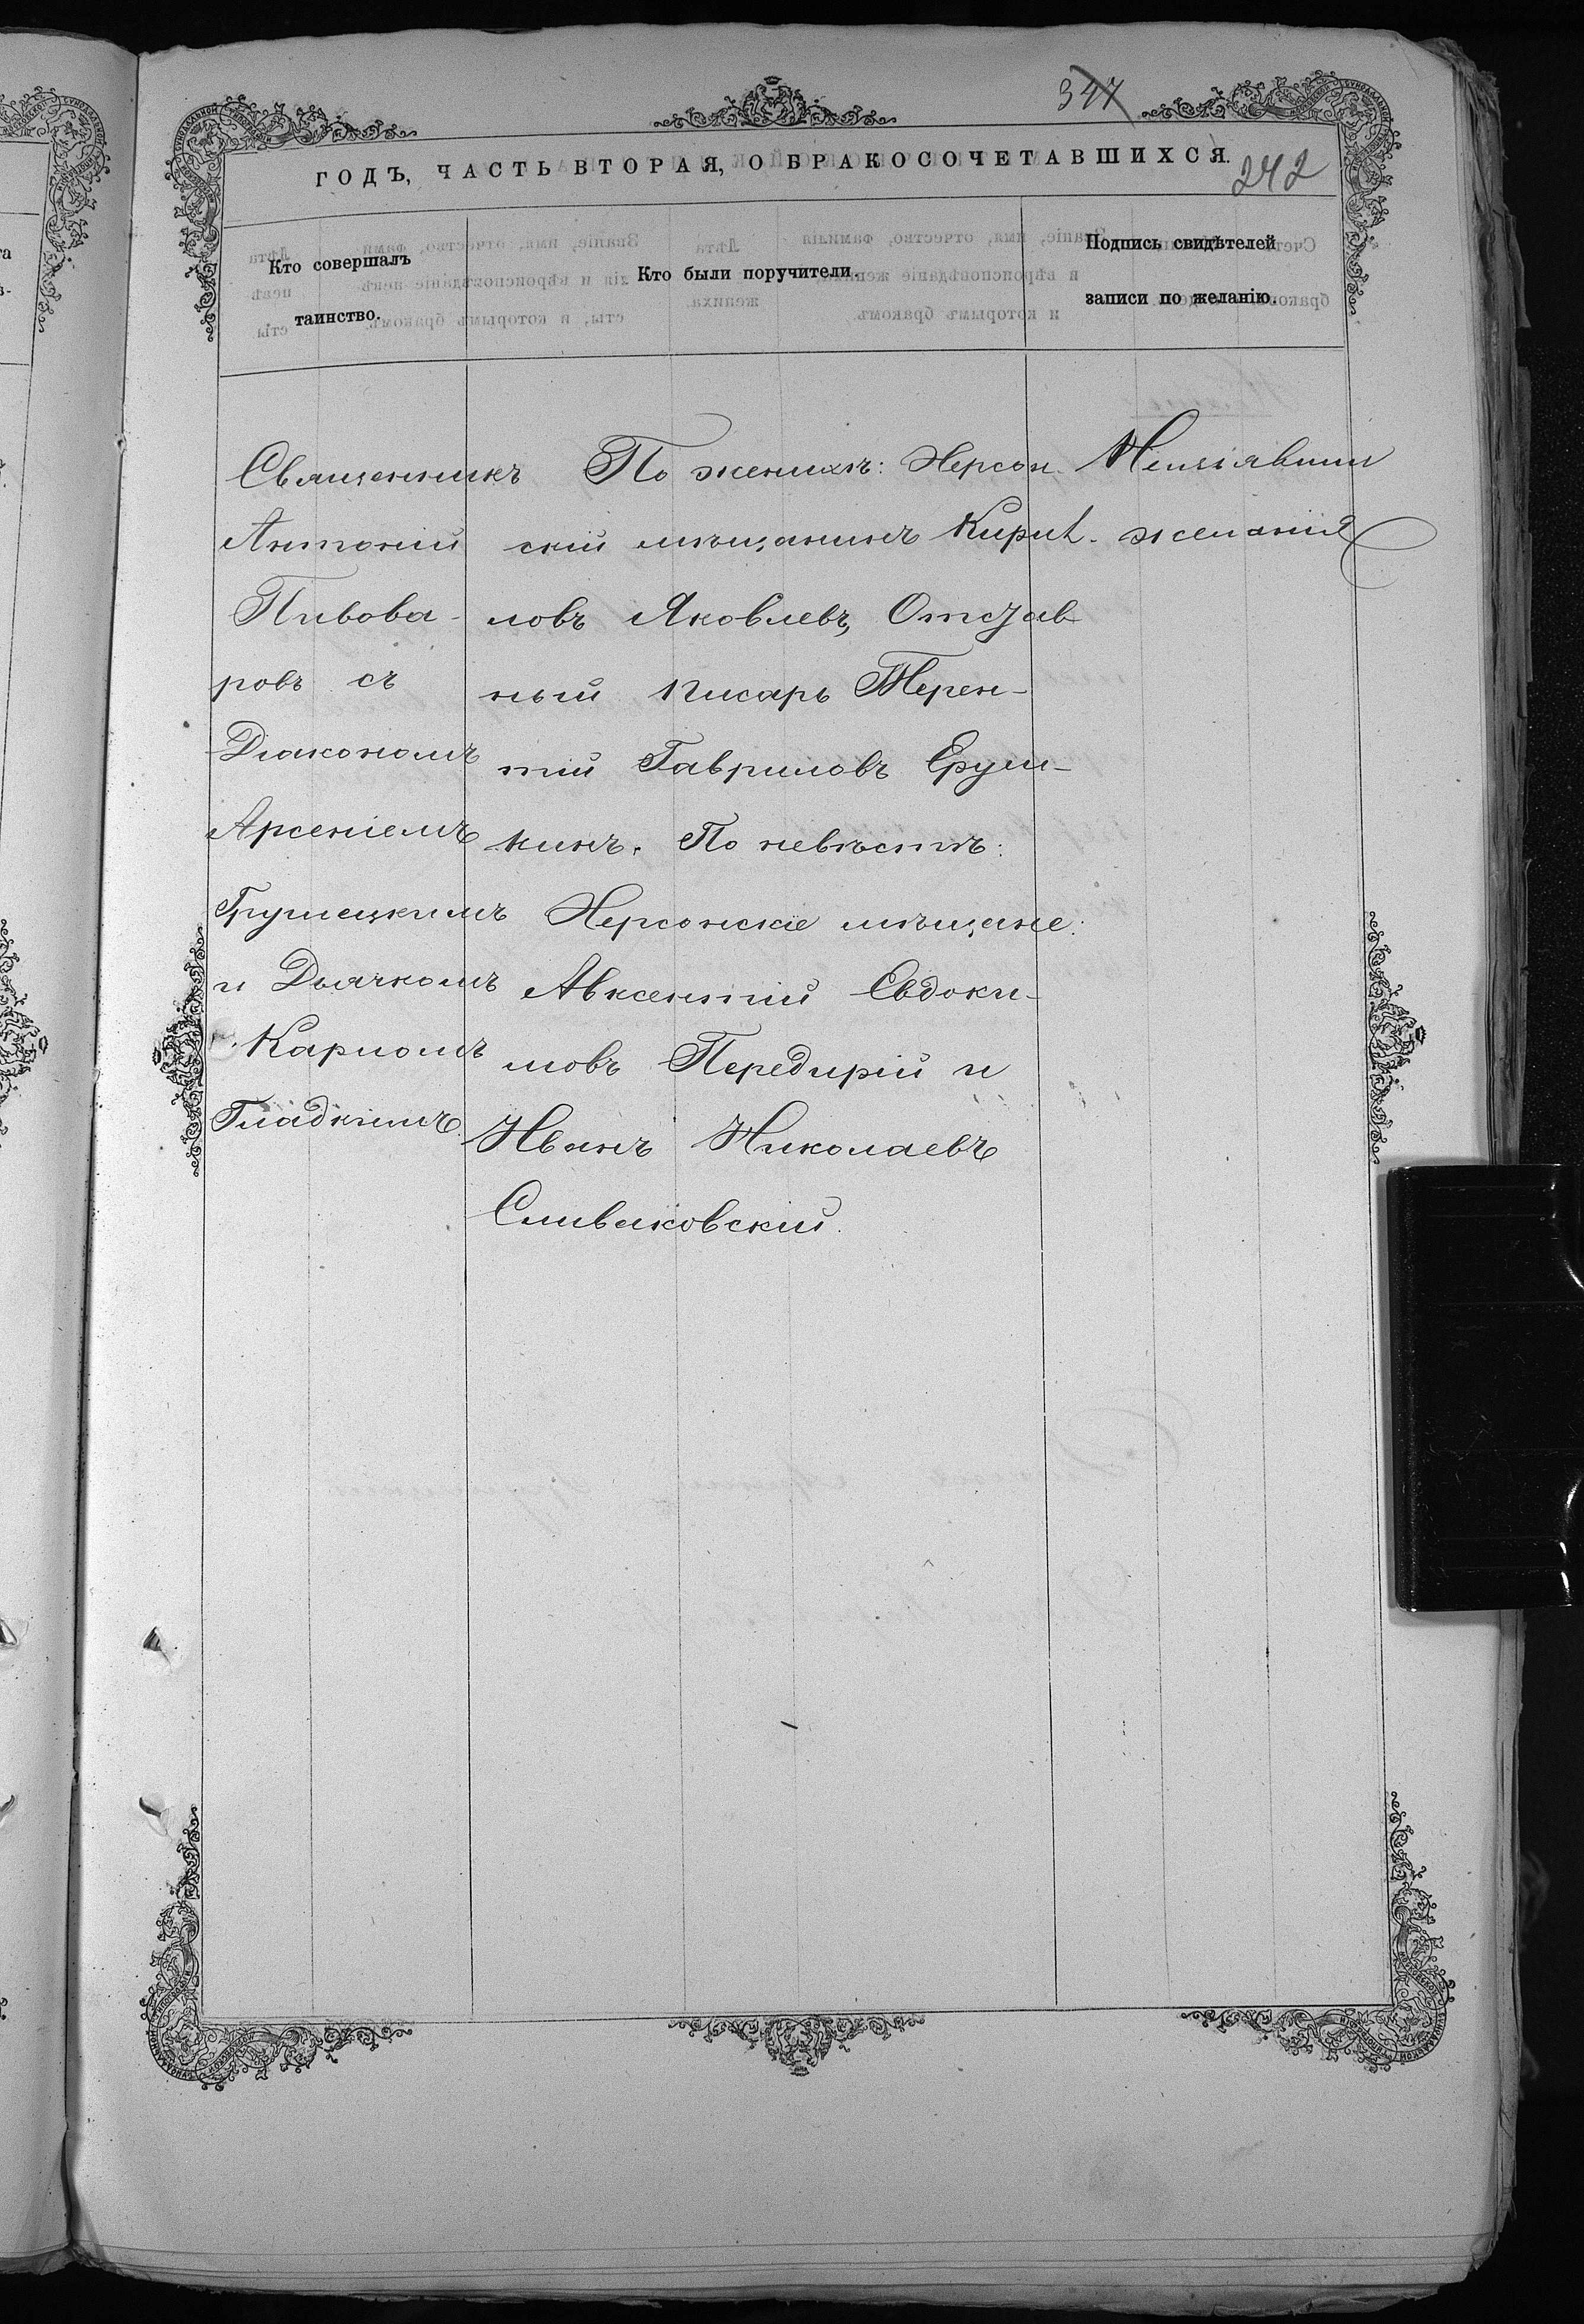 347
ГОДЪ, ЧАСТЬ ВТОРАЯ, О БРАКОСОЧЕТАВШИХСЯ.
242
Кто совершалъ
таинство.
Кто были поручители.
Подпись свидѣтелей
записи по желанію.
Священникъ
Антоній
Пивова-
ровъ съ
Діакономъ
Арсеніемъ
Грушецкимъ
и Дьячкомъ
Карпомъ
Гладкимъ.
По женихѣ: Херсон-
скій мѣщанинъ Кирил-
ловъ Яковлевъ, Отстав
ный писарь Терен-
тій Гавриловъ Ерум-
кинъ. По невѣстѣ:
Херсонскіе мѣщане:
Авксентій Евдоки-
мовъ Передирій и
Иванъ Николаевъ
Сливиковскій.
желанія